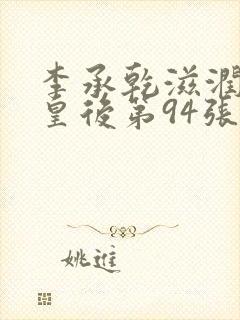 李承乾滋潤
皇後第94張
姚進